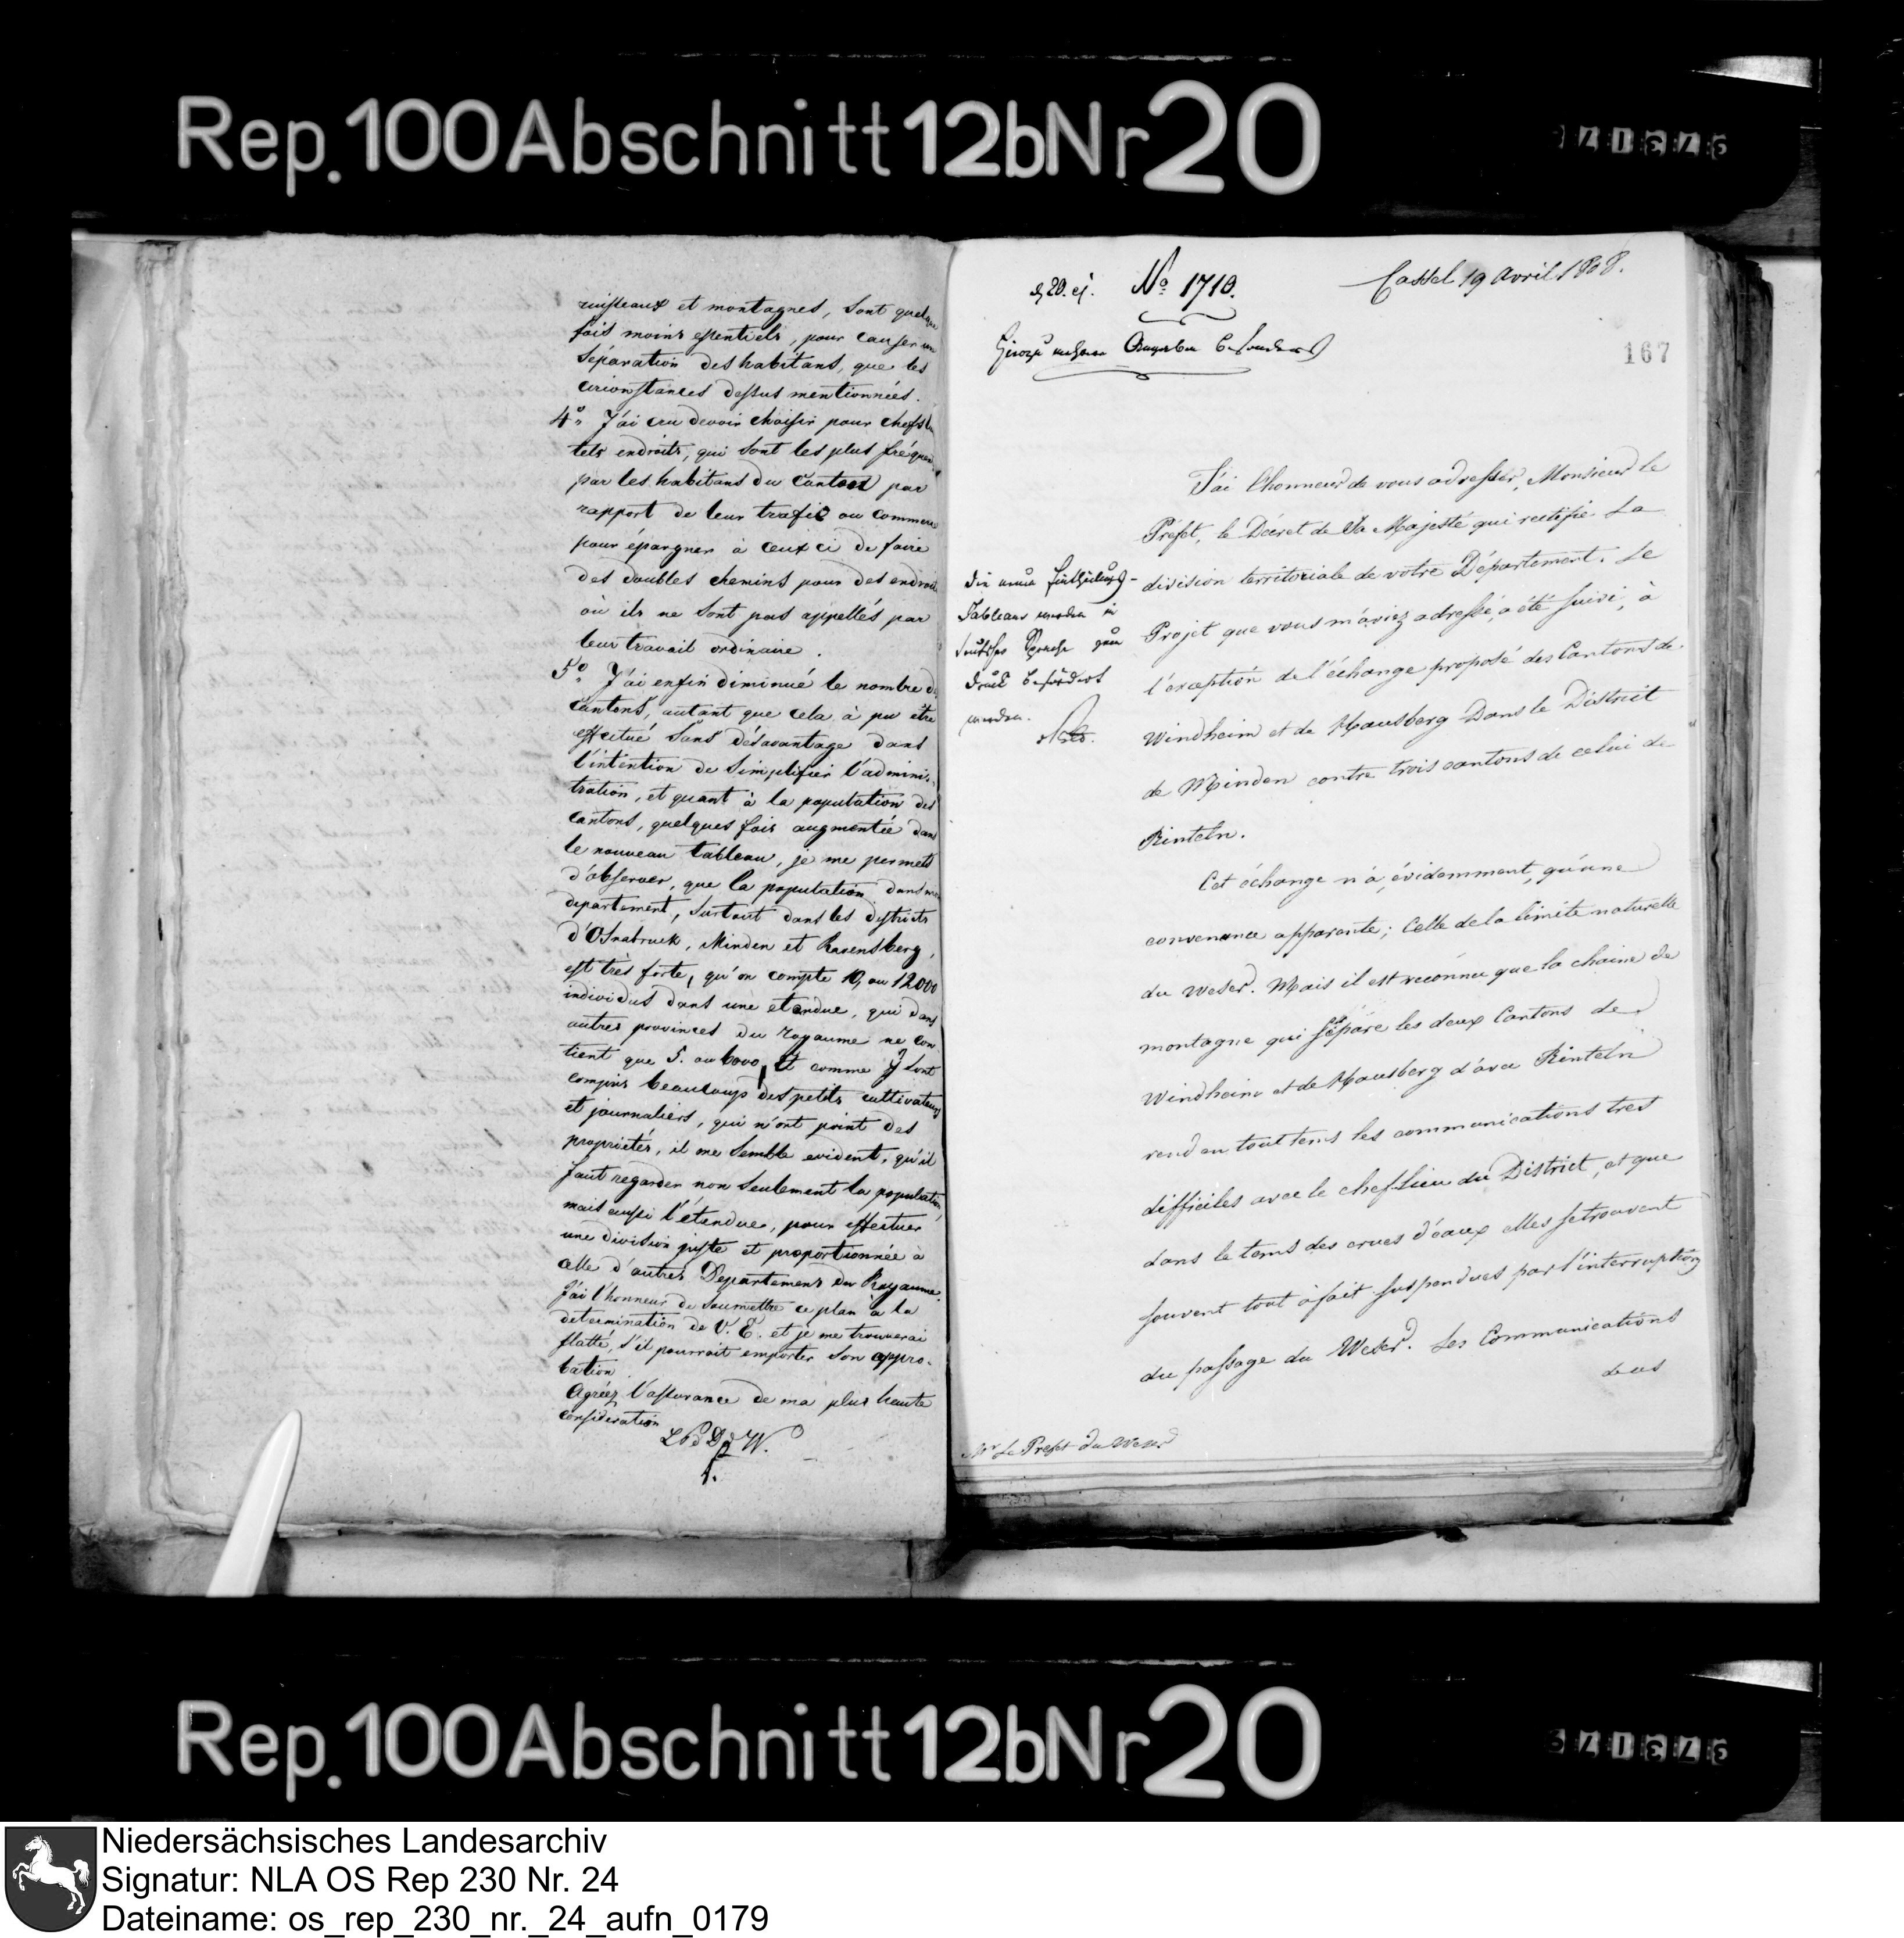 Rep. 100 Abschnitt 12b Nr 20
ruisseaux et montagnes, sont quelque
fois moins essentiels, pour causer une
séparation des habitans, que les
circonstances dessus mentionnées.
4° J'ai cru devoir choisir pour chefs lieux
tels endroits, qui sont les plus fréquentés
par les habitans du Canton par
rapport de leur trafic ou commerce
pour épargner à ceux ci de faire
des doubles chemins pour des endroits
où ils ne sont pas appellés par
leur travail ordinaire.
5° J'ai enfin diminué le nombre des
Cantons, autant que cela à pu être
effectué sans désavantage dans
l'intention de simplifier l'adminis-
tration, et quant à la population des
cantons, quelques fois augmentée dans
le nouveau tableau, je me permets
d'observer, que la population dans mon
departement, surtout dans les districts
d'Osnabruck, Minden et Ravensberg,
est très forte, qu'on compte 10, ou 12000
individus dans une etendue, qui dans
autres provinces du royaume ne con-
tient que 5. ou 6000, Et comme y sont
compris beaucoup des petits cultivateurs
et journaliers, qui n'ont point des
proprietés, il me semble evident, qu'il
faut regarder non seulement la population,
mais aussi l'étendue, pour effectuer
une division juste et proportionnée à
celle d'autres Departemens du Royaume.
J'ai l'honneur de soumettre ce plan à la
determination de V. E. et je me trouverai
flatté, s'il pourrait emporter son appro-
bation
Agréez l'assurance de ma plus haute
consideration
L P d D d W.
Cassel 19 Avril 1808.
N° 1710.
167
J'ai l'honneur de vous adresser, Monsieur le
Préfet, le Décret de Sa Majesté qui rectifie la
division territoriale de votre Département. Le
Projet que vous m'aviez adressé, a été suivi, à
l'exception de l'échange proposé des Cantons de
Windheim et de Hausberg dans le District
de Minden contre trois cantons de celui de
Rinteln.
die neue Eintheilungs-
Tableaus werden in
deutscher Sprache zum
Druck befördert
werden.
Cet échange n'a, évidemment, qu'une
convenance apparente; Celle de la limite naturelle
du Weser. Mais il est reconnu que la chaine de
montagne qui sépare les deux Cantons de
Windheim et de Hausberg d'avec Rinteln
rend en tout tems les communications tres
difficiles avec le chef-lieu du District, et que
dans le tems des crues d'eaux elles se trouvent
souvent tout à fait suspendues par l'interruption
du passage du Weser. Les Communications
de ces
Mr Le Préfet du Weser
Rep. 100 Abschnitt 12b Nr 20
Niedersächsisches Landesarchiv
Signatur: NLA OS Rep 230 Nr. 24
Dateiname: os_rep_230_nr._24_aufn_0179